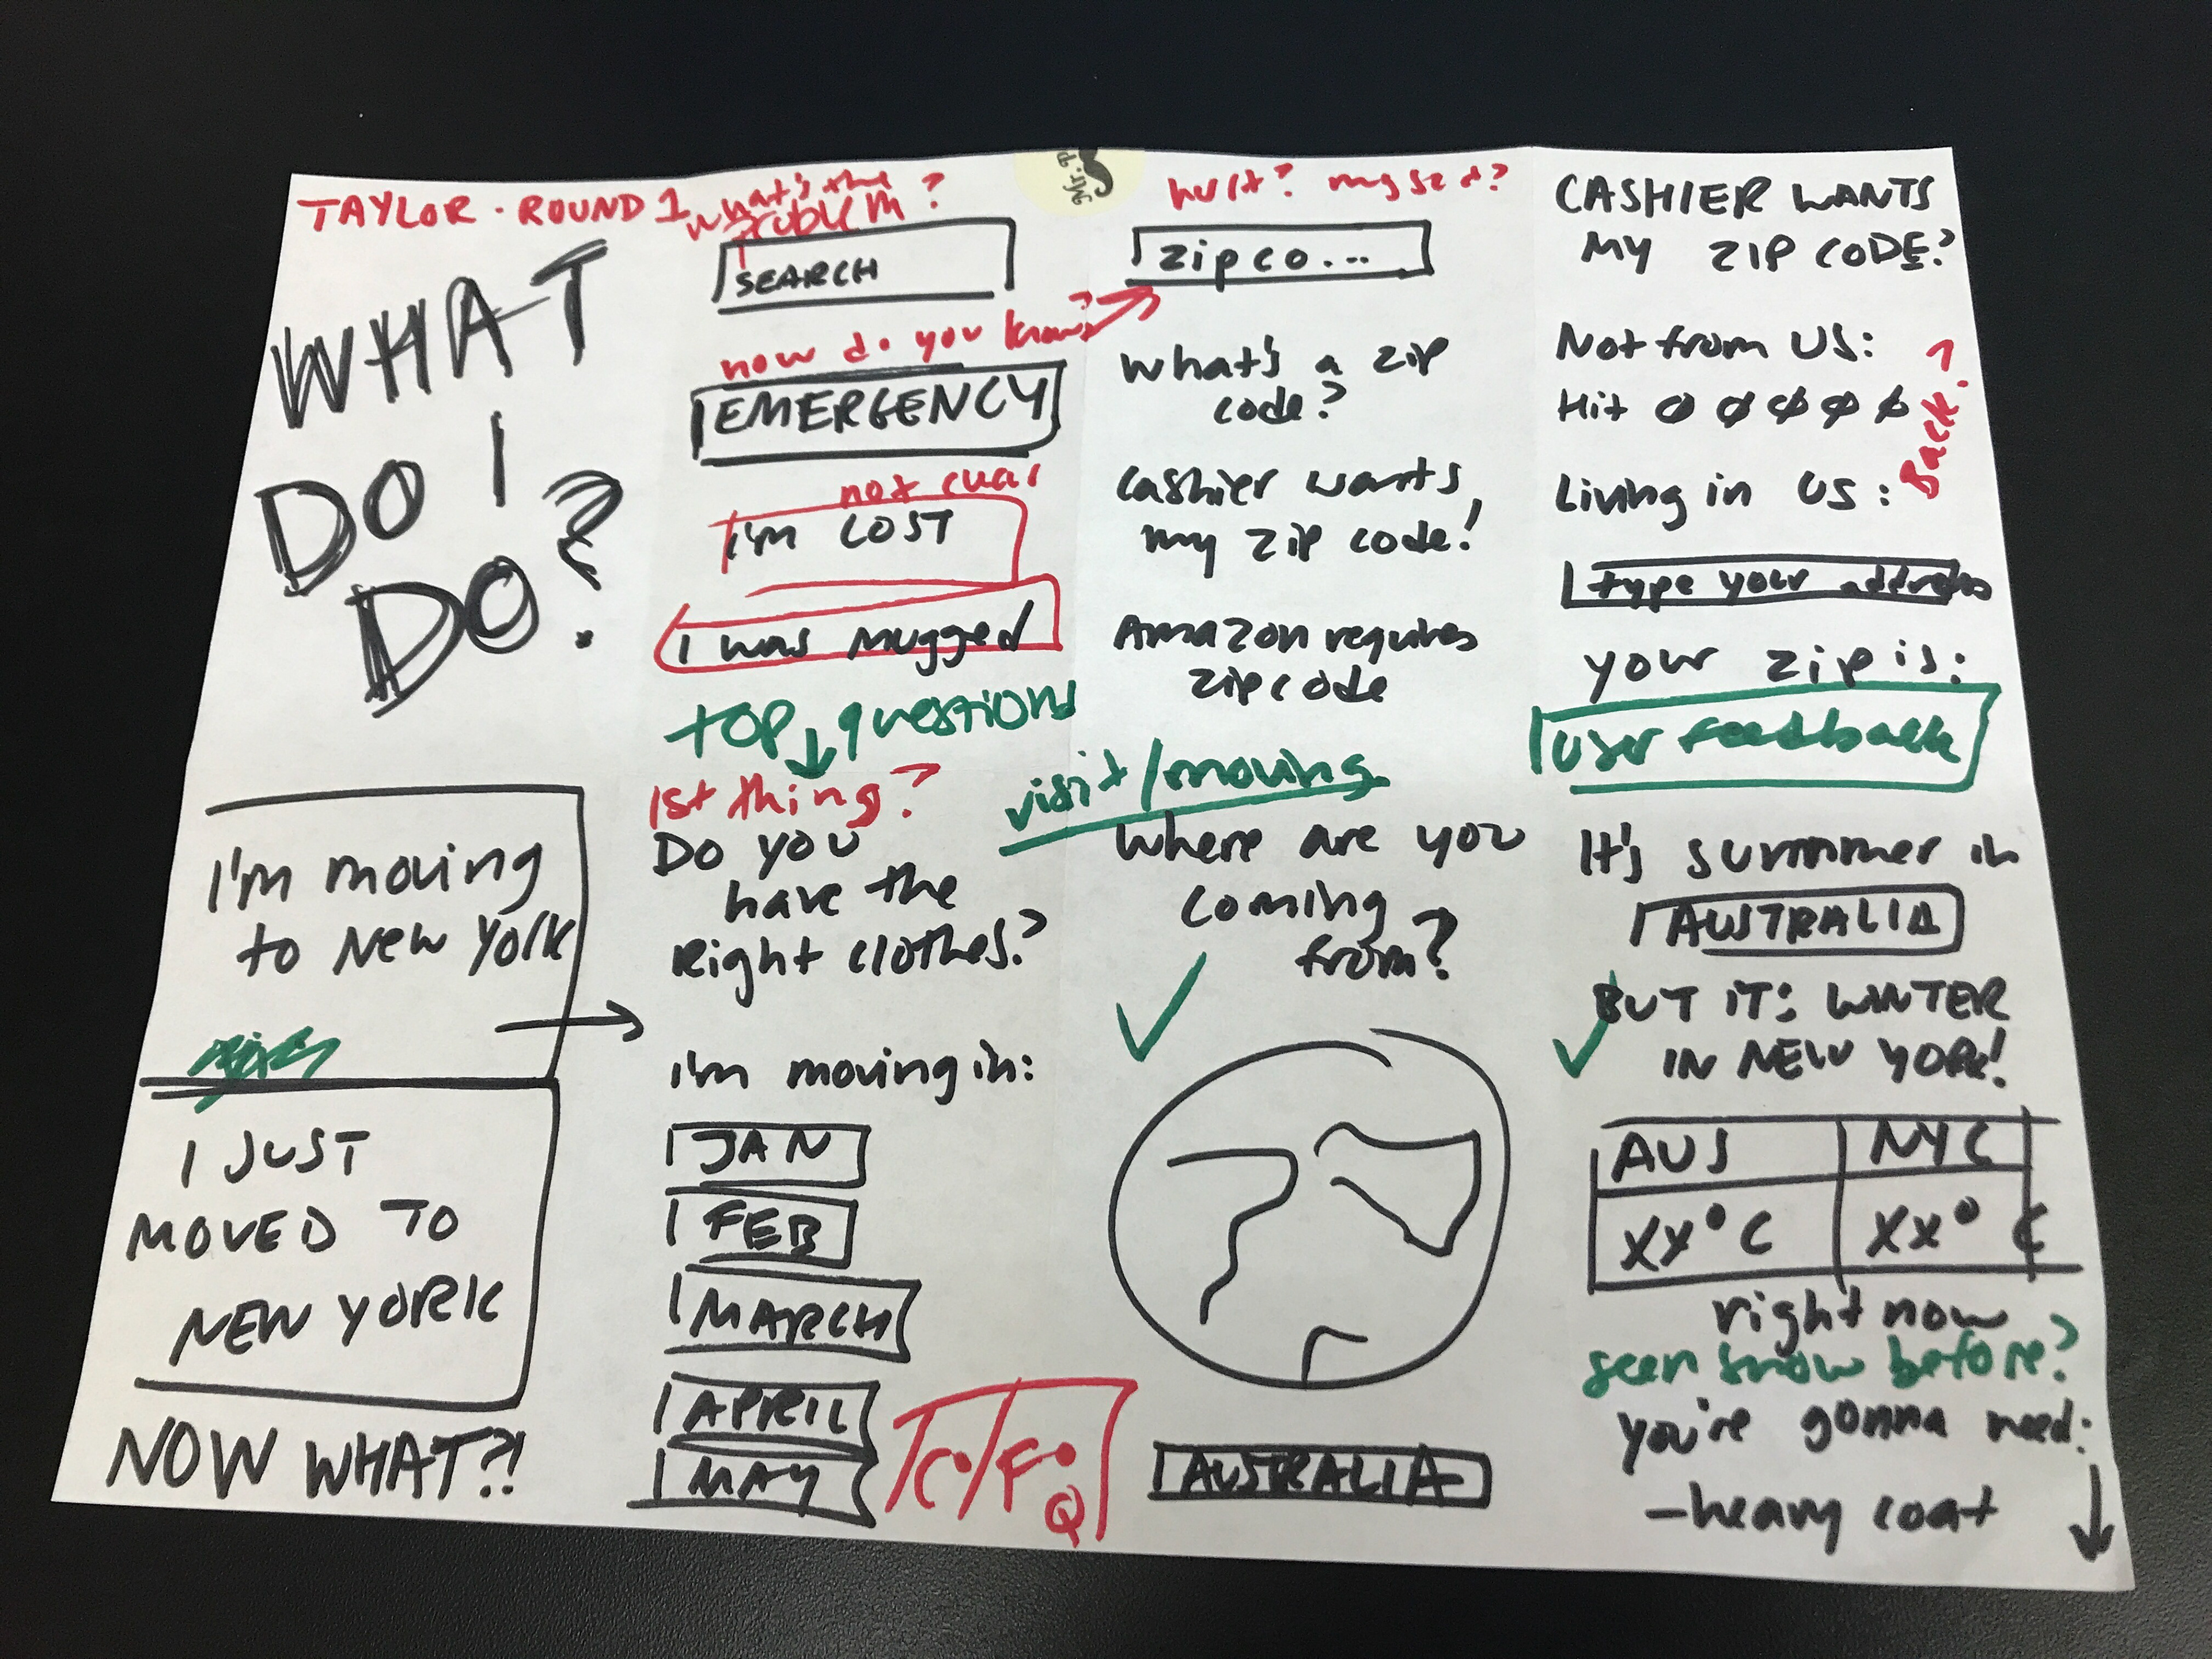 TAYLOR . ROUND 1
WHAT
DO I
DO?
what's the
problem?
SEARCH
how do you know?
EMERGENCY
not clear
I'm LOST
I was mugged
TOP questions
Mr. P
hurt?
zip co...
What's a zip
code?
Cashier wants
my zip code!
Amazon requires
zip code
CASHIER WANTS
MY ZIP CODE?
Not from US:
Hit 0 0 0 0 0
Back?
Living in US:
type your address
your zip is:
user feedback
I'm moving
to New York
I JUST
MOVED TO
NEW YORK
NOW WHAT?!
1st thing?
Do you
have the
right clothes?
I'm moving in:
JAN
FEB
MARCH
APRIL
MAY
C°/F°
Q
visit/moving
Where are you
coming
from?
AUSTRALIA
It's summer in
AUSTRALIA
BUT IT'S WINTER
IN NEW YORK!
AUS NYC
XX°C XX°C
right now
seen snow before?
you're gonna need:
-heavy coat